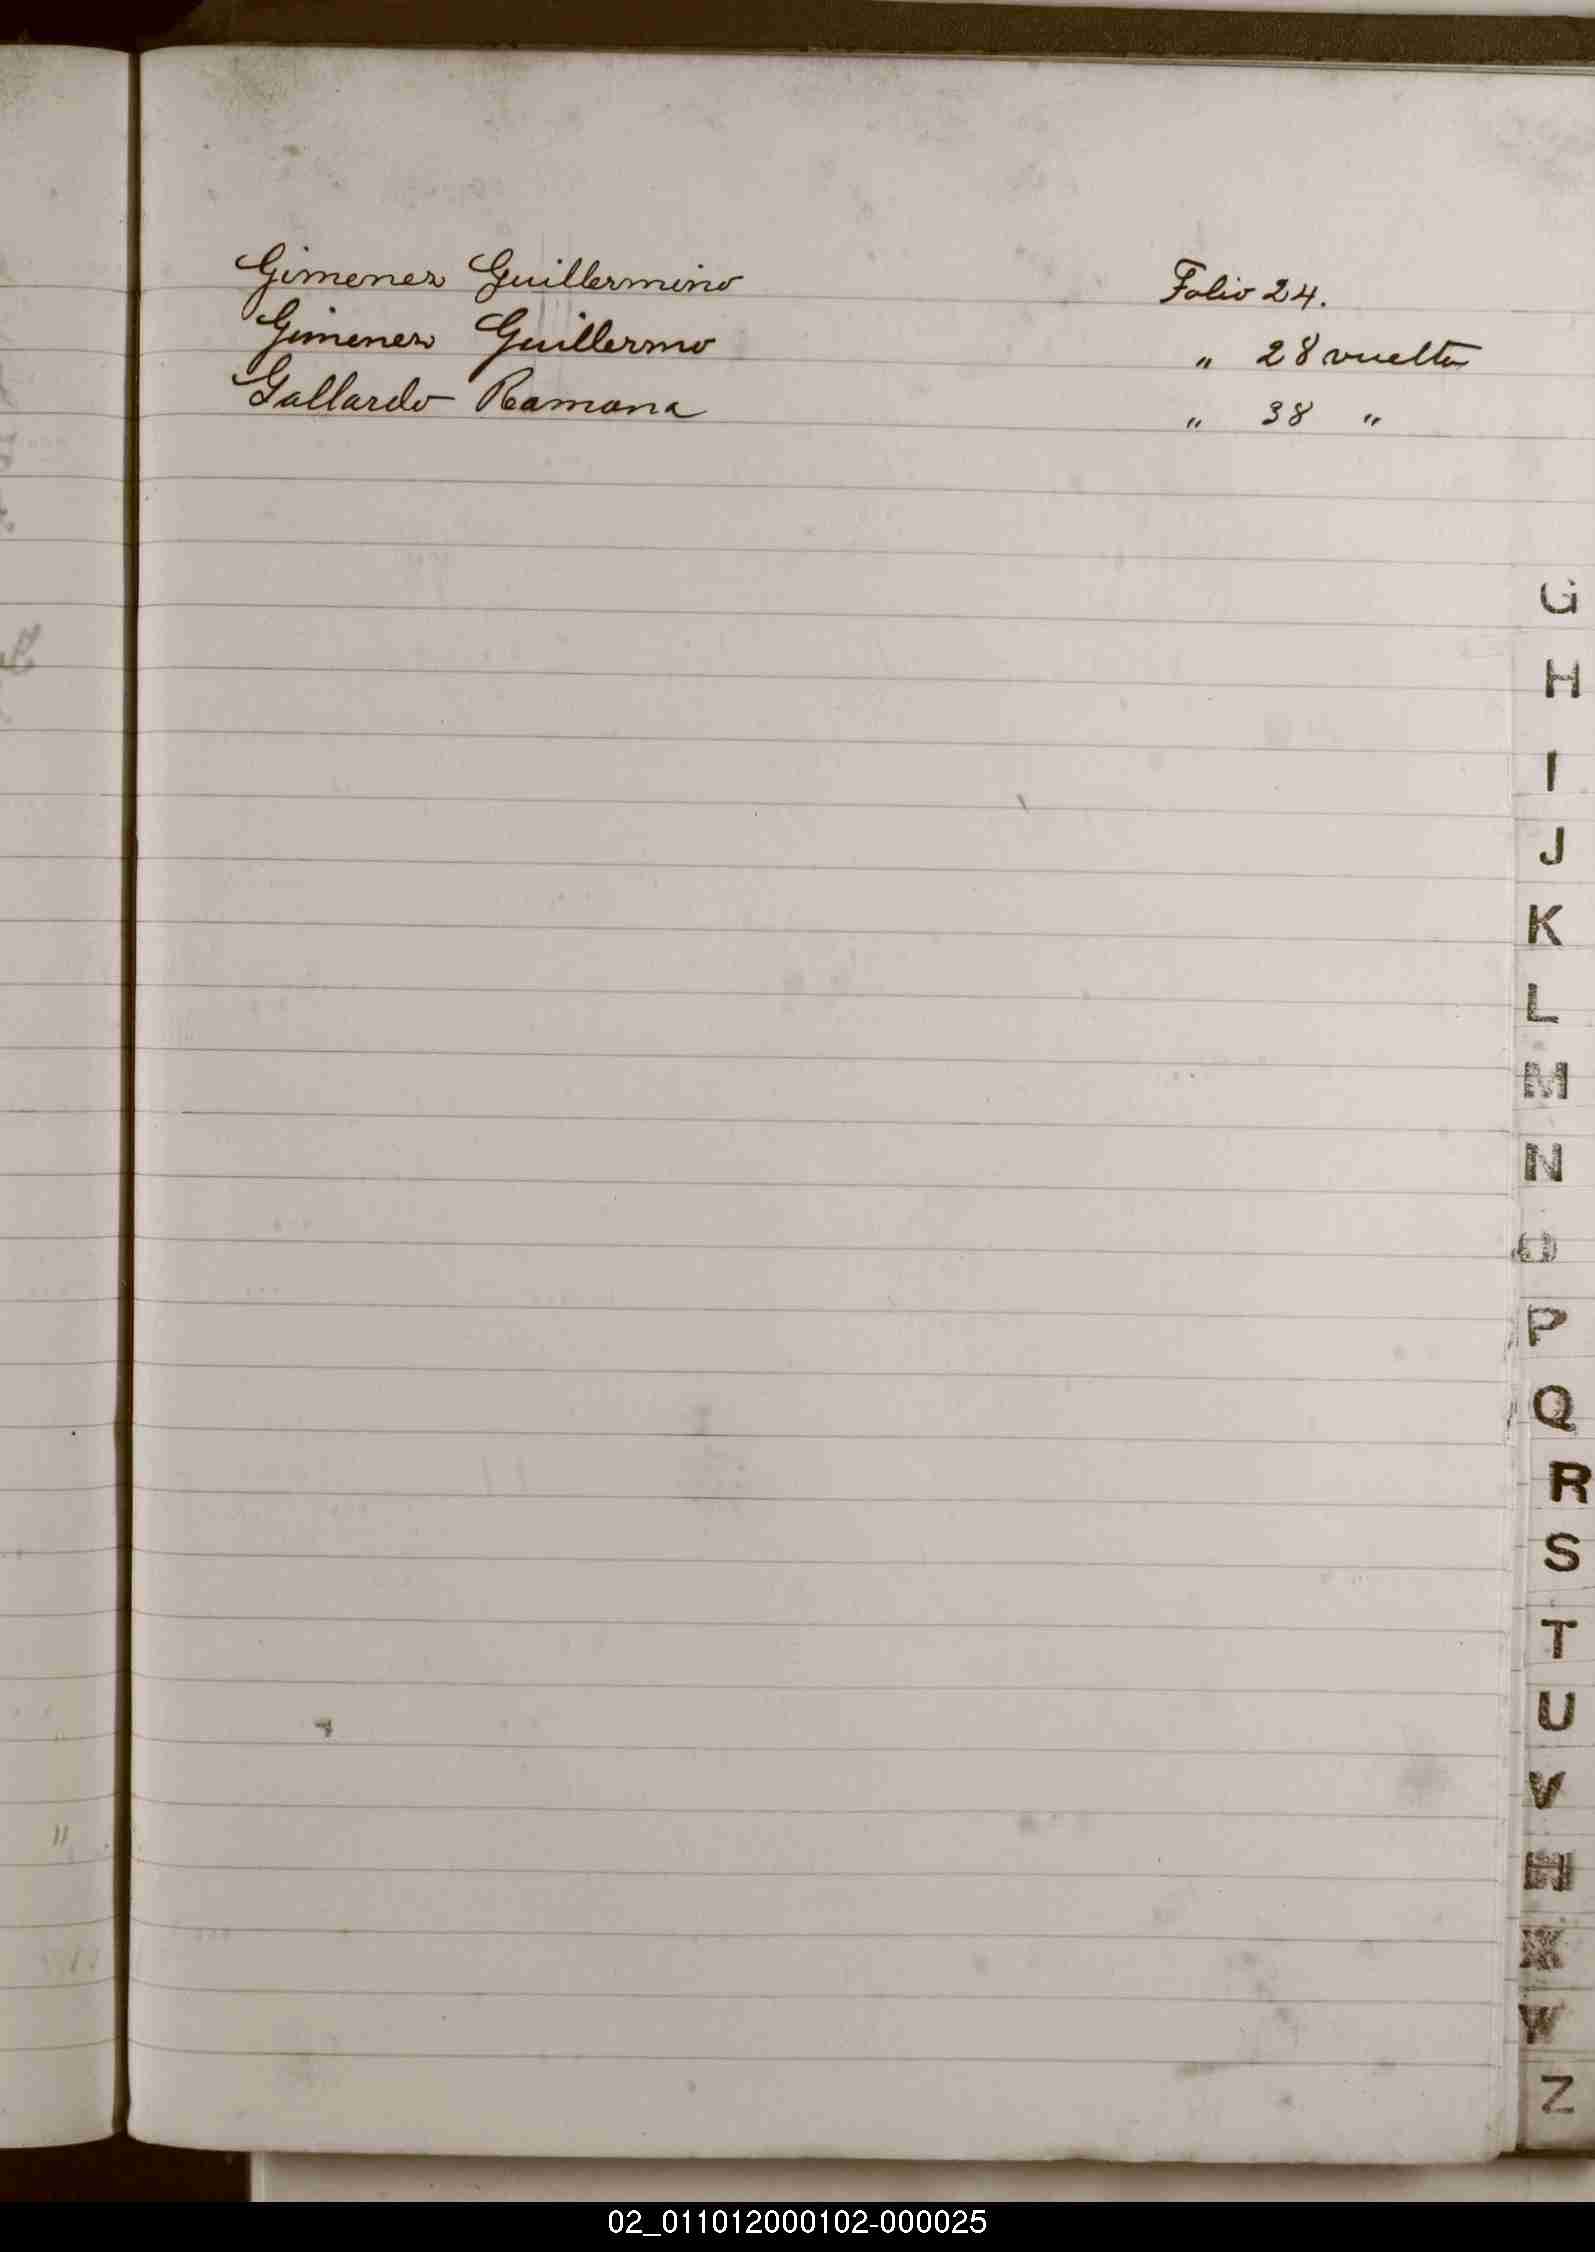 Gimenez Guillermino Folio 24.
Gimenez Guillermo " 28 vuelta
Gallardo Ramona " 38 "
G
H
I
J
K
L
M
N
O
P
Q
R
S
T
U
V
W
Z
02_011012000102-000025